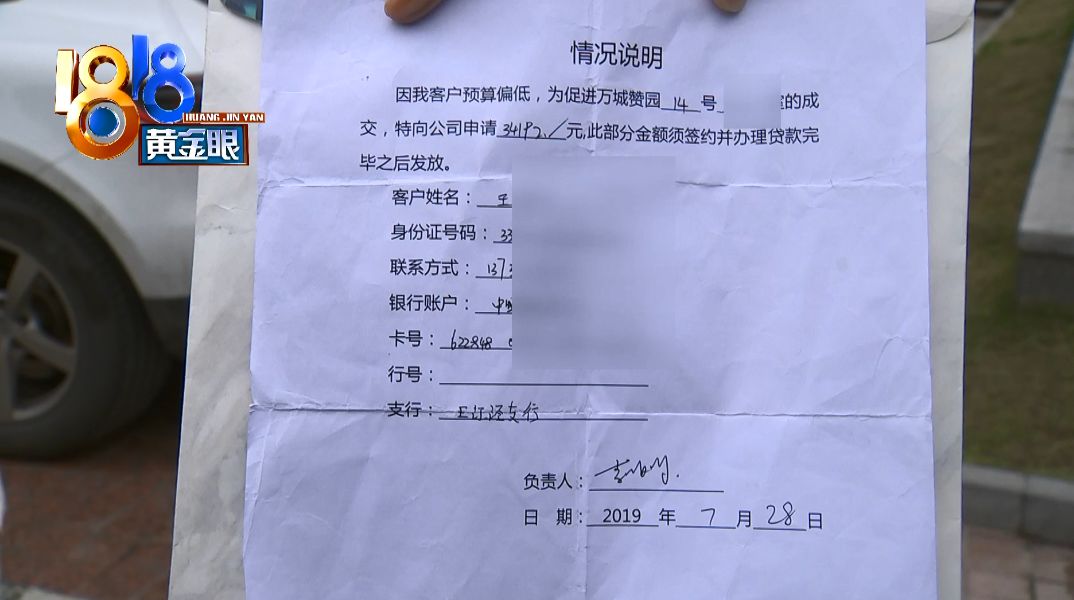 1818
HUANG JIN YAN
黄金眼
情况说明
因我客户预算偏低，为促进万城赞园 14 号 室的成
交，特向公司申请 34192./ 元,此部分金额须签约并办理贷款完
毕之后发放。
客户姓名：王
身份证号码：33
联系方式：1373
银行账户：中
卡号：622848 0
行号：
支行：王江泾支行
负责人：
日 期：2019 年 7 月 28 日